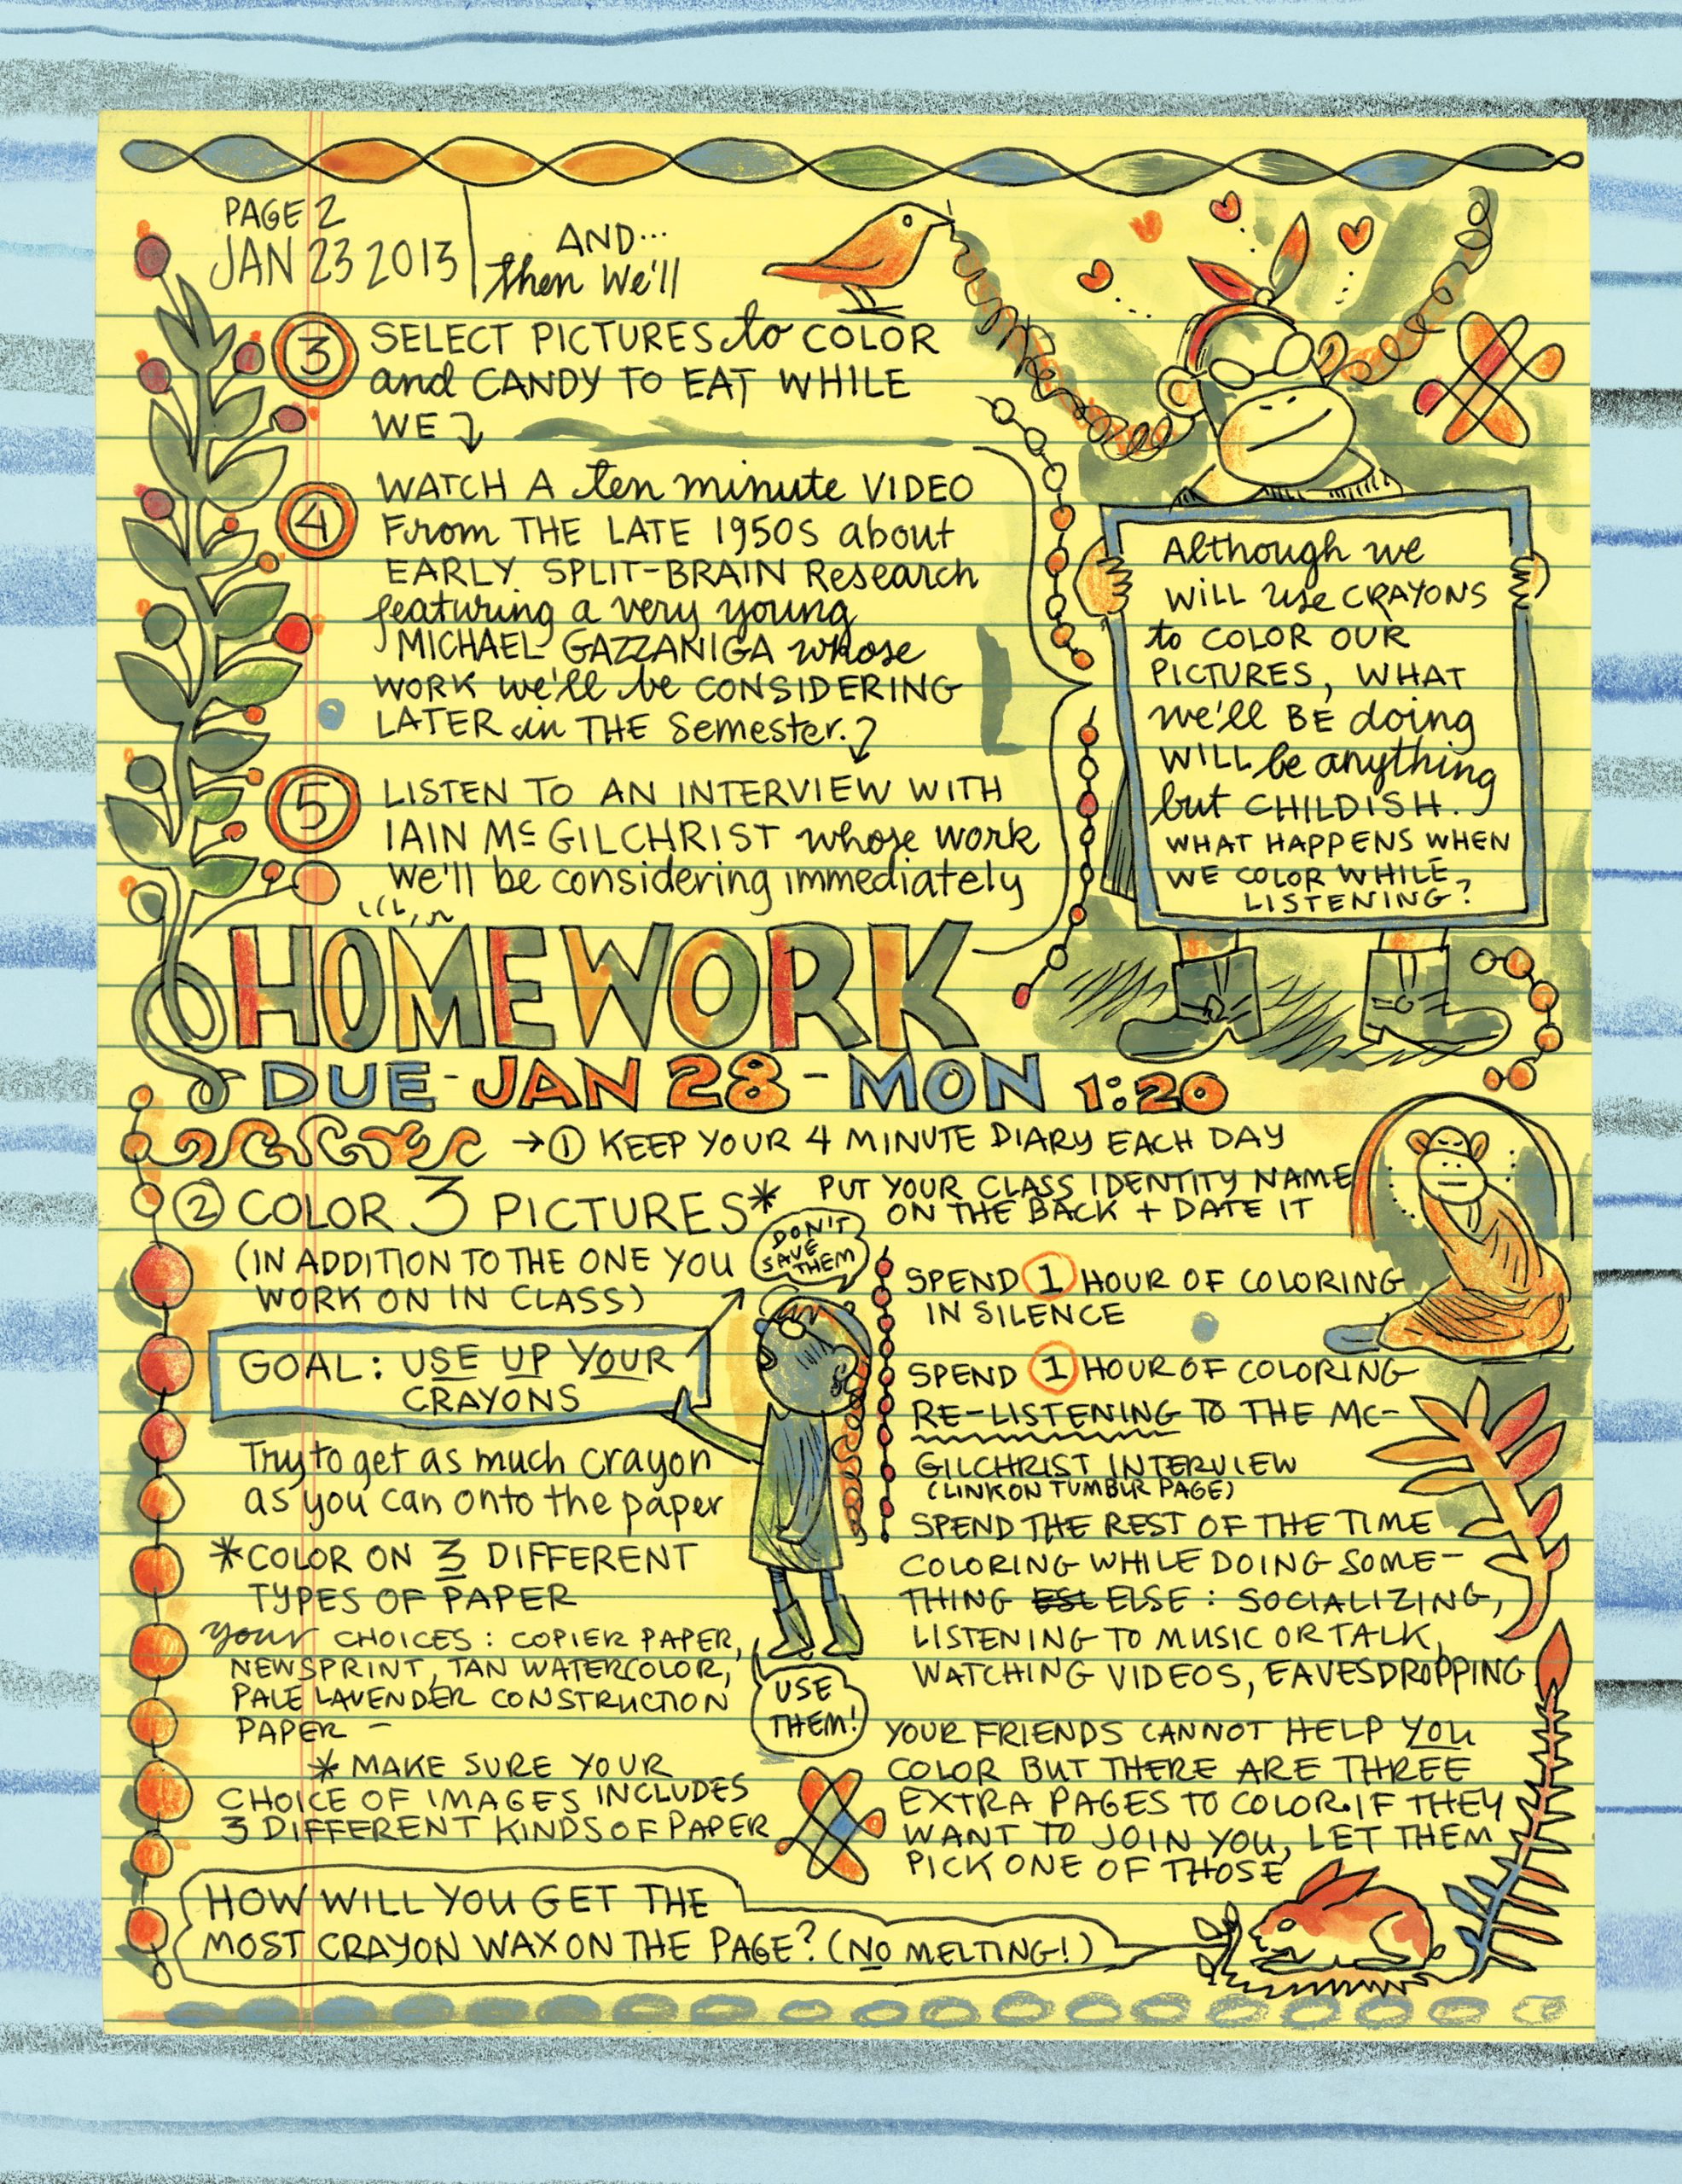 PAGE 2
JAN 23 2013
AND...
then We'll
3 SELECT PICTURES to COLOR
and CANDY TO EAT WHILE
WE
4 WATCH A ten minute VIDEO
From THE LATE 1950S about
EARLY SPLIT-BRAIN Research
featuring a very young
MICHAEL GAZZANIGA whose
WORK we'll be CONSIDERING
LATER in THE Semester.
5 LISTEN TO AN INTERVIEW WITH
IAIN McGILCHRIST whose work
we'll be considering immediately
Although we
WILL use CRAYONS
to COLOR OUR
PICTURES, WHAT
we'll BE doing
WILL be anything
but CHILDISH.
WHAT HAPPENS WHEN
WE COLOR WHILE
LISTENING?
HOMEWORK
DUE - JAN 28 - MON 1:20
→ 1 KEEP YOUR 4 MINUTE DIARY EACH DAY
2 COLOR 3 PICTURES*
PUT YOUR CLASS IDENTITY NAME
ON THE BACK + DATE IT
(IN ADDITION TO THE ONE YOU
WORK ON IN CLASS)
DON'T
SAVE
THEM
GOAL: USE UP YOUR
CRAYONS
Try to get as much crayon
as you can onto the paper
*COLOR ON 3 DIFFERENT
TYPES OF PAPER
your CHOICES: COPIER PAPER,
NEWSPRINT, TAN WATERCOLOR,
PALE LAVENDER CONSTRUCTION
PAPER -
* MAKE SURE YOUR
CHOICE OF IMAGES INCLUDES
3 DIFFERENT KINDS OF PAPER
USE
THEM!
SPEND 1 HOUR OF COLORING
IN SILENCE
SPEND 1 HOUR OF COLORING
RE-LISTENING TO THE MC-
GILCHRIST INTERVIEW
(LINK ON TUMBLR PAGE)
SPEND THE REST OF THE TIME
COLORING WHILE DOING SOME-
THING ESL ELSE: SOCIALIZING,
LISTENING TO MUSIC OR TALK,
WATCHING VIDEOS, EAVESDROPPING
YOUR FRIENDS CANNOT HELP YOU
COLOR BUT THERE ARE THREE
EXTRA PAGES TO COLOR. IF THEY
WANT TO JOIN YOU, LET THEM
PICK ONE OF THOSE
HOW WILL YOU GET THE
MOST CRAYON WAX ON THE PAGE? (NO MELTING!)